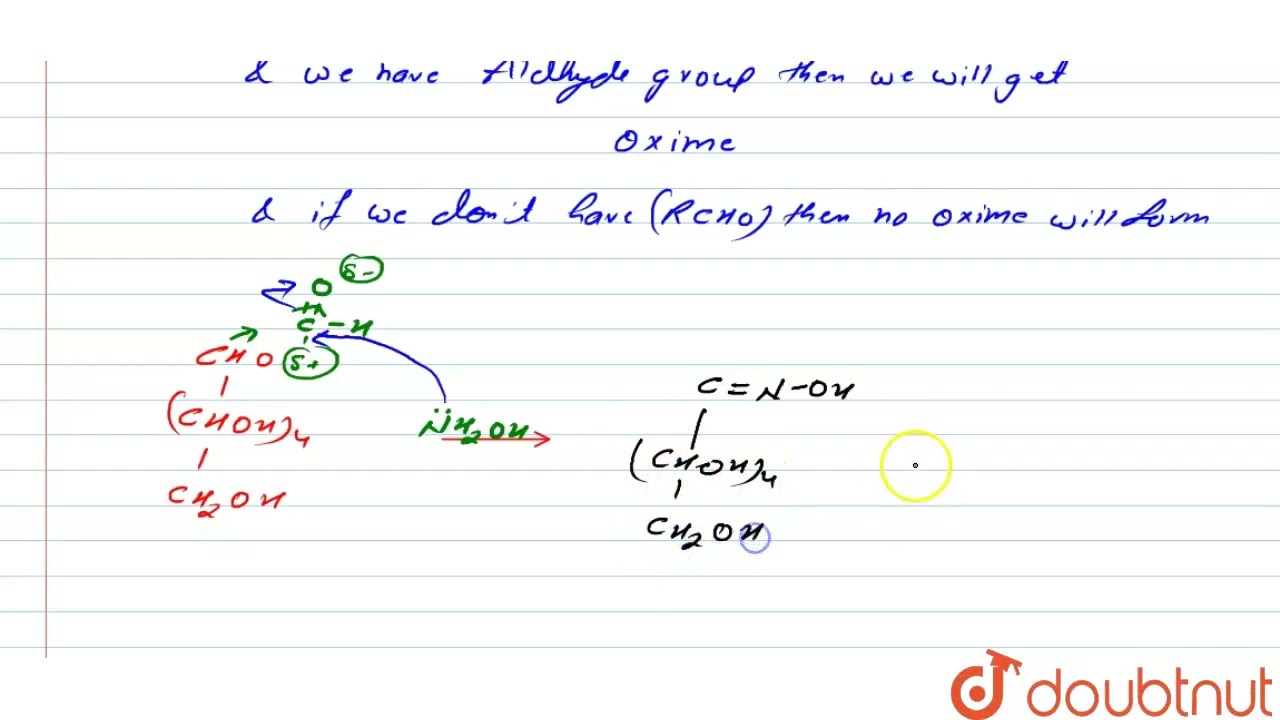 & we have Aldhyde group then we will get
Oxime
& if we don't have (RCHO) then no oxime will form
O δ-
C - H
CHO δ+
C = N - OH
(CHOH)4
NH2OH
(CHOH)4
CH2OH
CH2OH
doubtnut